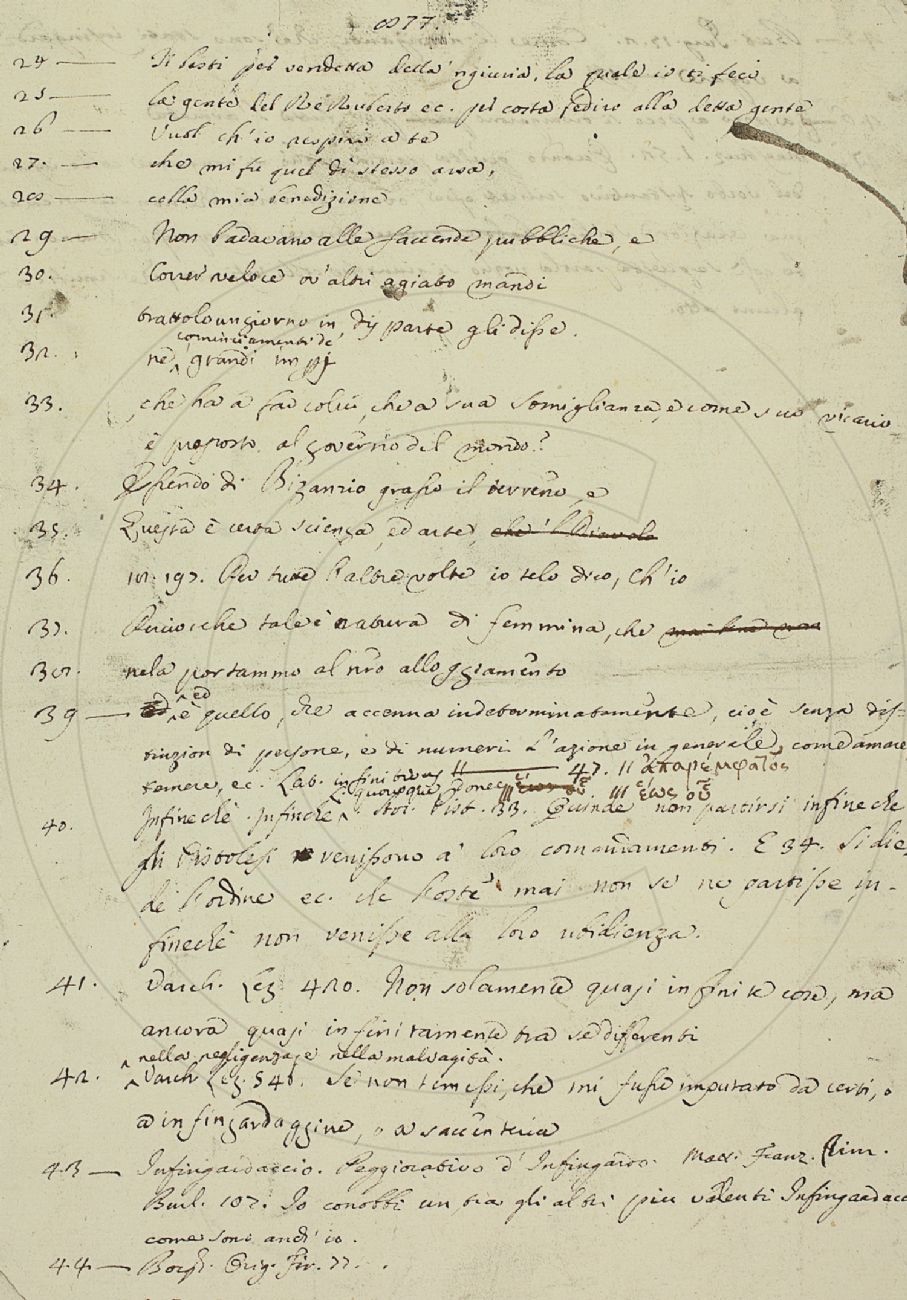 877.
24 — Ti basti per vendetta della 'ngiuria, la quale io ti feci
25 — la gente del Re Ruberto ec. per costa fedire alla detta gente
26 — Vuol ch'io respiri a te
27. — che mi fu quel dì stesso arsa,
28 — colla mia benedizione
29 — Non badavano alle faccende pubbliche, e
30. Correr veloce ov'altri agiato mandi
31. trattolo un giorno in disparte gli disse.
cominciamenti de'
32. ne' grandi
33. che ha a far colui, che a sua somiglianza, e come suo vicario
è preposto al governo del mondo?
34. di Bizanzio grasso il terreno, e
35. Questa è certa scienza, ed arte, che 'l Diavolo
36. 192. Per tutte l'altre volte io telo dico, ch'io
37. Perciocchè tale è natura di femmina, che
38. nela portammo al nro alloggiamento
39 — ed è quello, che accenna indeterminatamente, cioè senza dis-
tinzion di persone, e di numeri l'azione in generale, come amare
temere, ec. Lat. infinitivus 47. ἀπαρέμφατος
quousque, donec ἕως οὗ
40. Infinechè. Infinchè. Stor. Pist. 33. Quinde non partirsi infineche
gli Pistolesi venissono a' loro comandamenti. E 34. Si die-
de l'ordine ec. che l'oste mai non se ne partisse in-
finechè non venisse alla loro ubidienza.
41. Varch. Lez. 420. Non solamente quasi infinite cose, ma
ancora quasi infinitamente tra se differenti
nella negligenza, e nella malvagità.
42. Varch. Lez. 540. Se non temessi, che mi fusse imputato da certi, o
a infingardaggine, o a saccenteria
43 — Infingardaccio. Peggiorativo d'Infingardo. Matt. Franz. Rim.
Burl. 107. Io conobbi un tra gli altri più valenti Infingardacc
come sono anch'io.
44 — Borgh. Orig. Fir. 77.